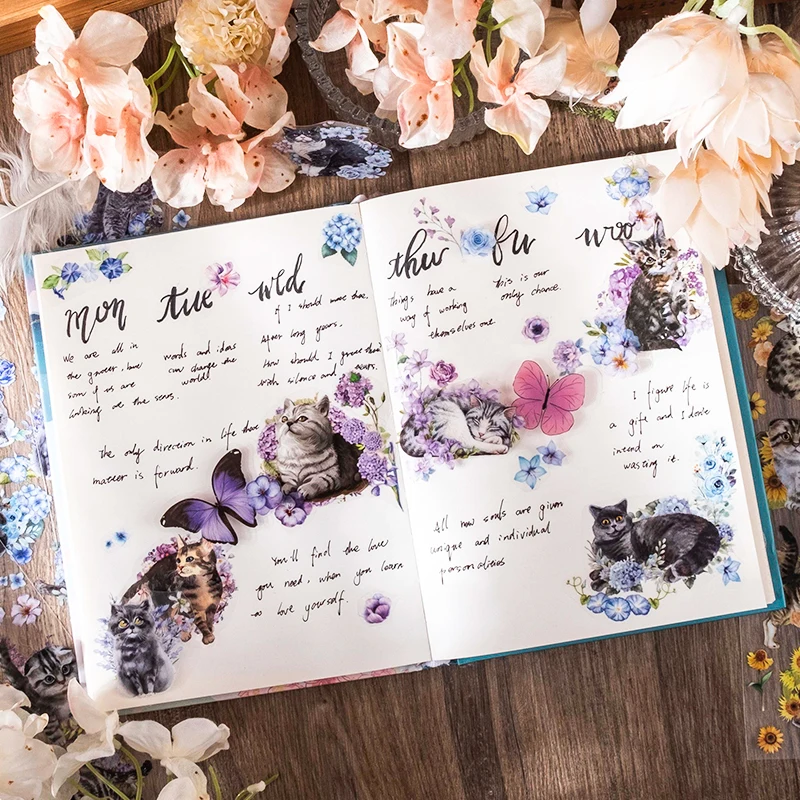 mon tue wed
We are all in
the gutter, but
som of us are
looking at the stars.
words and ideas
can change the
world!
If I should meet thee,
After long years,
How should I greet thee?
With silence and tears.
the only direction in life that
matter is forward.
You'll find the love
you need, when you learn
to love yourself.
thur
things have a
way of working
themselves one.
this is our
only chance.
I figure life is
a gift and I don't
intend on
wasting it.
All new souls are given
unique and individual
personalities